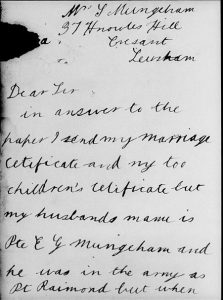 Mrs S Mungeham
37 Knowles Hill
Cresant
Lewsham
Dear Sir
in answer to the
paper I send my marriage
Cetificate and my too
children's Cetificate but
my husbands name is
Pte E G Mungeham and
he was in the army as
Pt Raimond but when